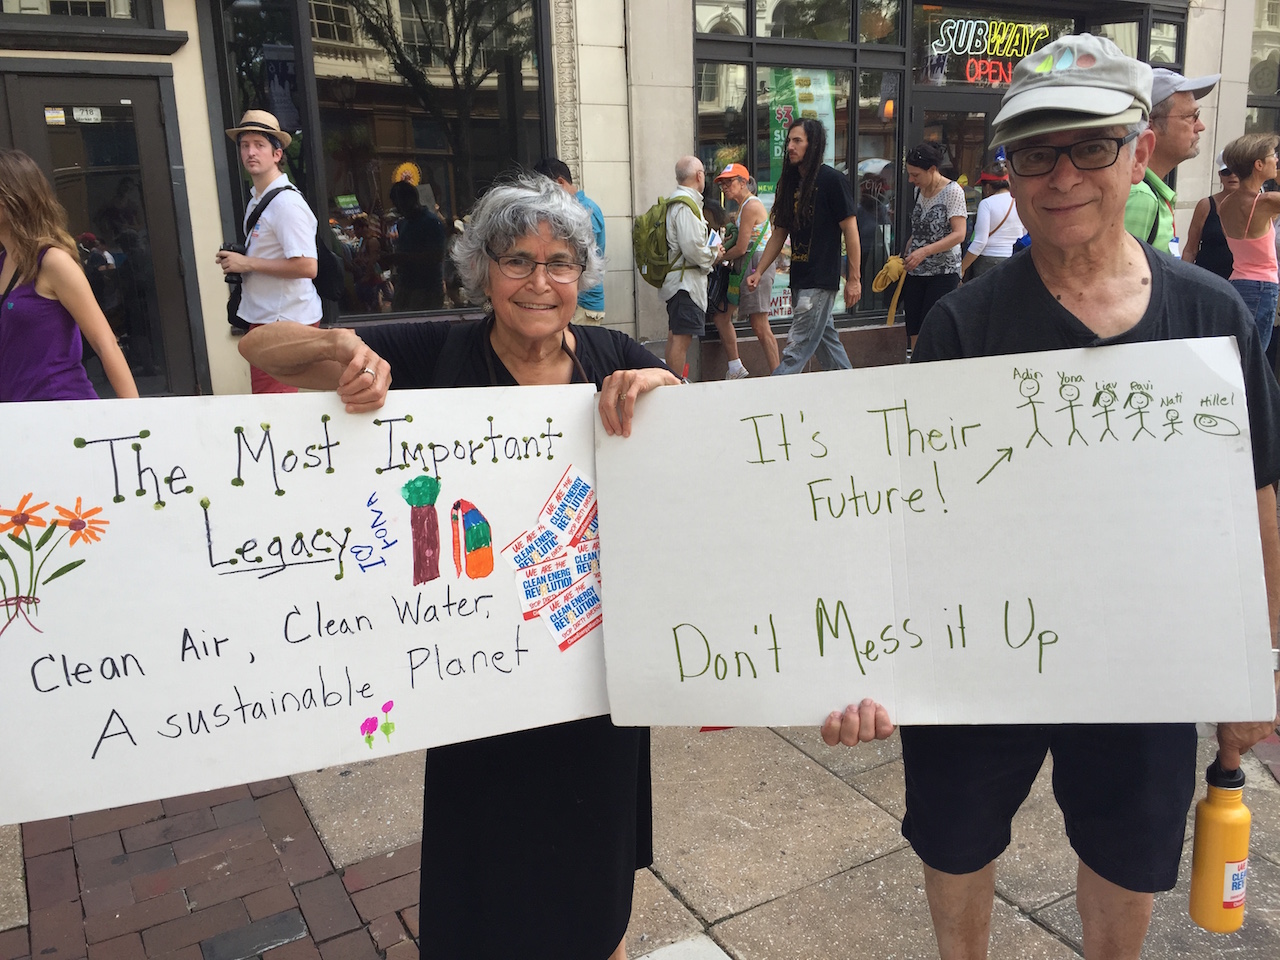 718
SUBWAY
OPEN
$3
The Most Important
Legacy
I ♡
HOME
Clean Air, Clean Water,
A sustainable Planet
WE ARE THE
CLEAN ENERGY
REVOLUTION
STOP DIRTY
WE ARE THE
CLEAN ENERGY
REVOLUTION
Adin Yona Liav Ravi Nati Hillel
It's Their
Future!
Don't Mess it Up
WE
CLEA
REV